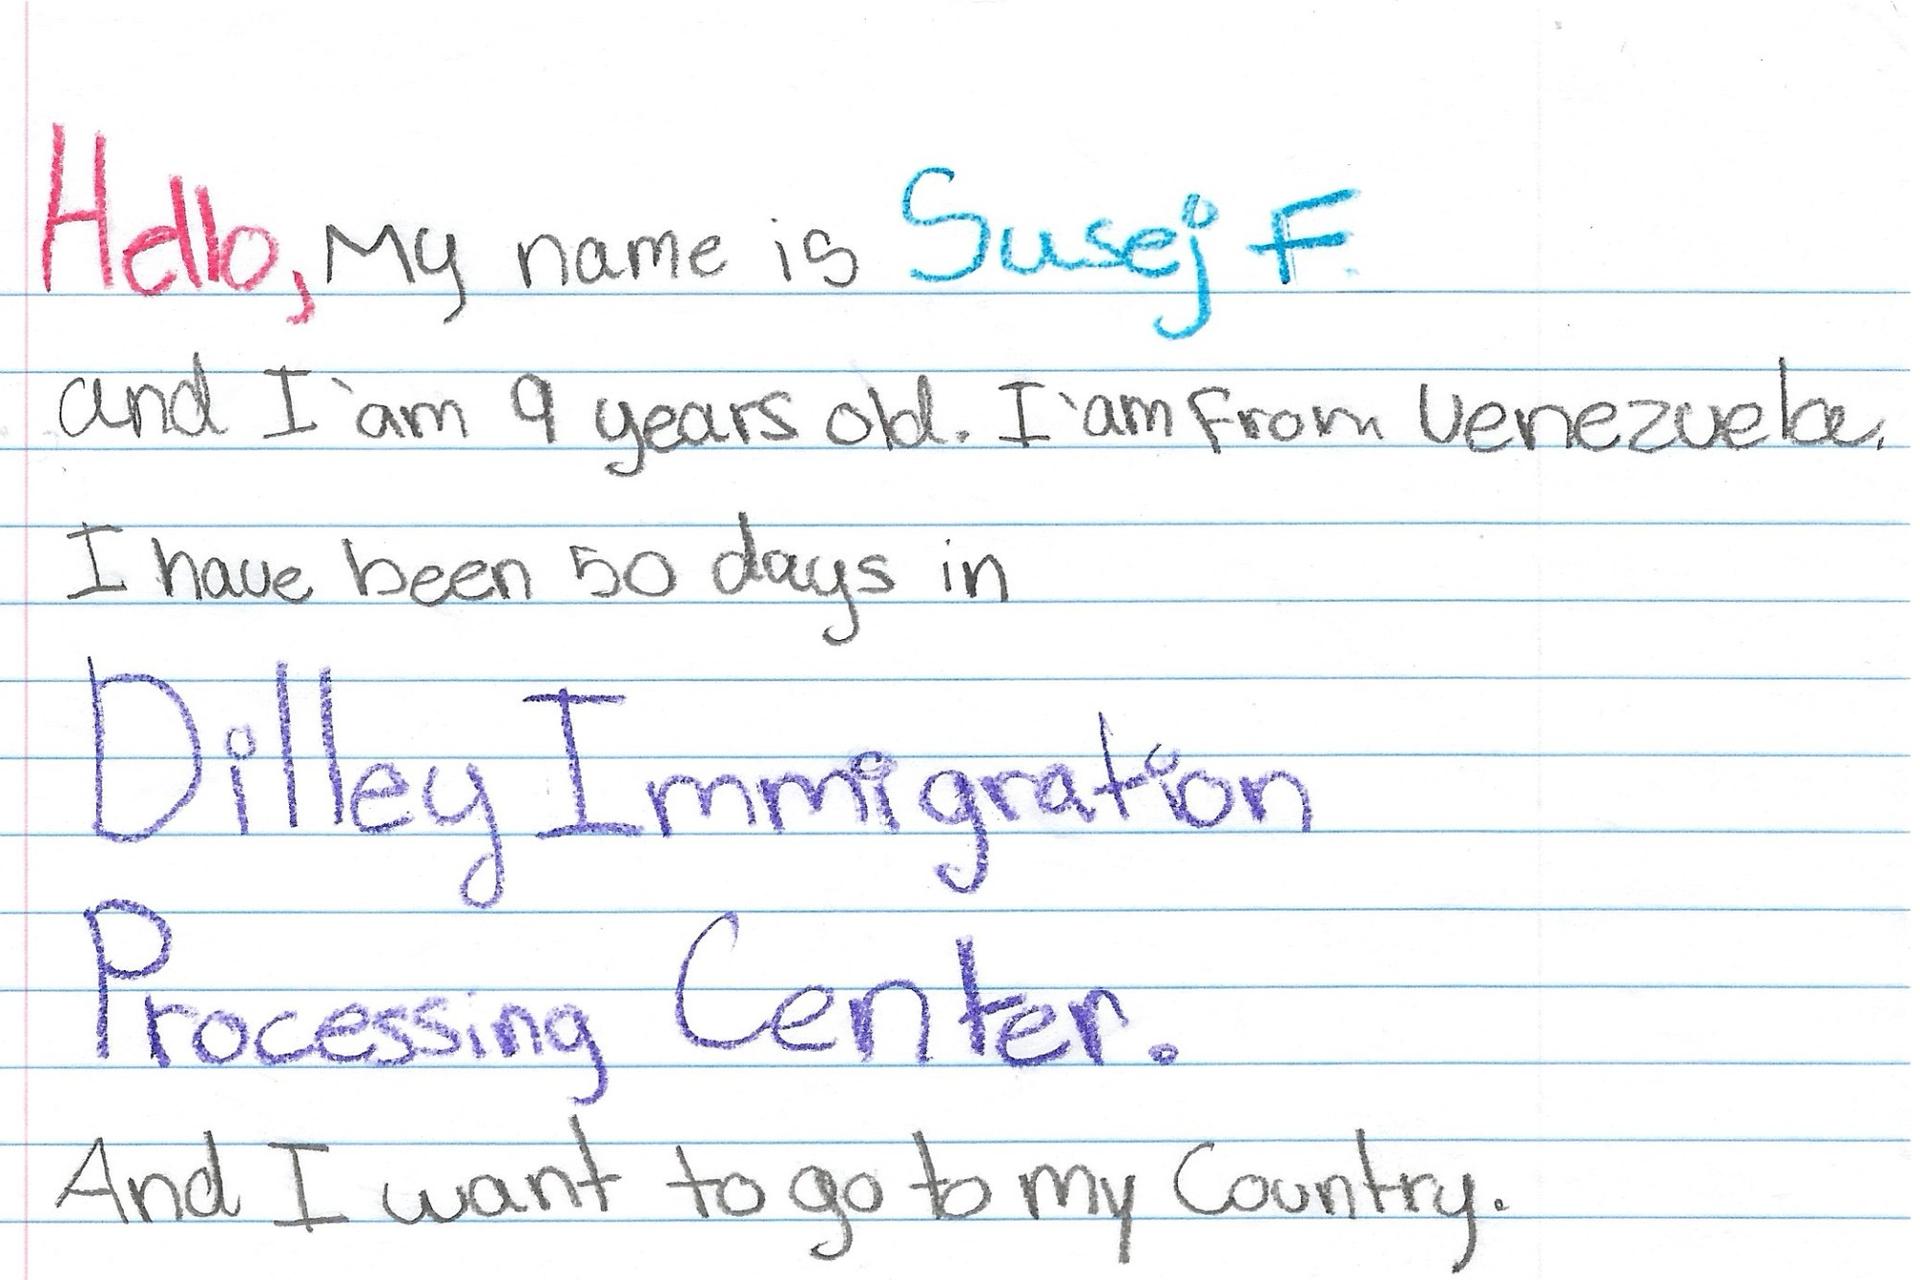 Hello, My name is Susej F.
and I`am 9 years old. I`am From Venezuela.
I have been 50 days in
Dilley Immigration
Processing Center.
And I want to go to my Country.